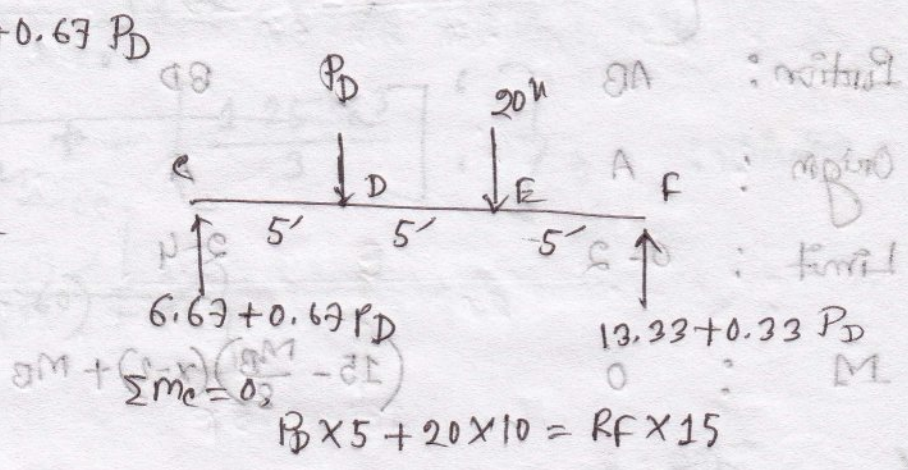 +0.67 PD
PD
20k
C
D
E
F
5′ 5′ 5′
6.67+0.67 PD
13.33+0.33 PD
ΣMC = 0,
PD × 5 + 20 × 10 = RF × 15